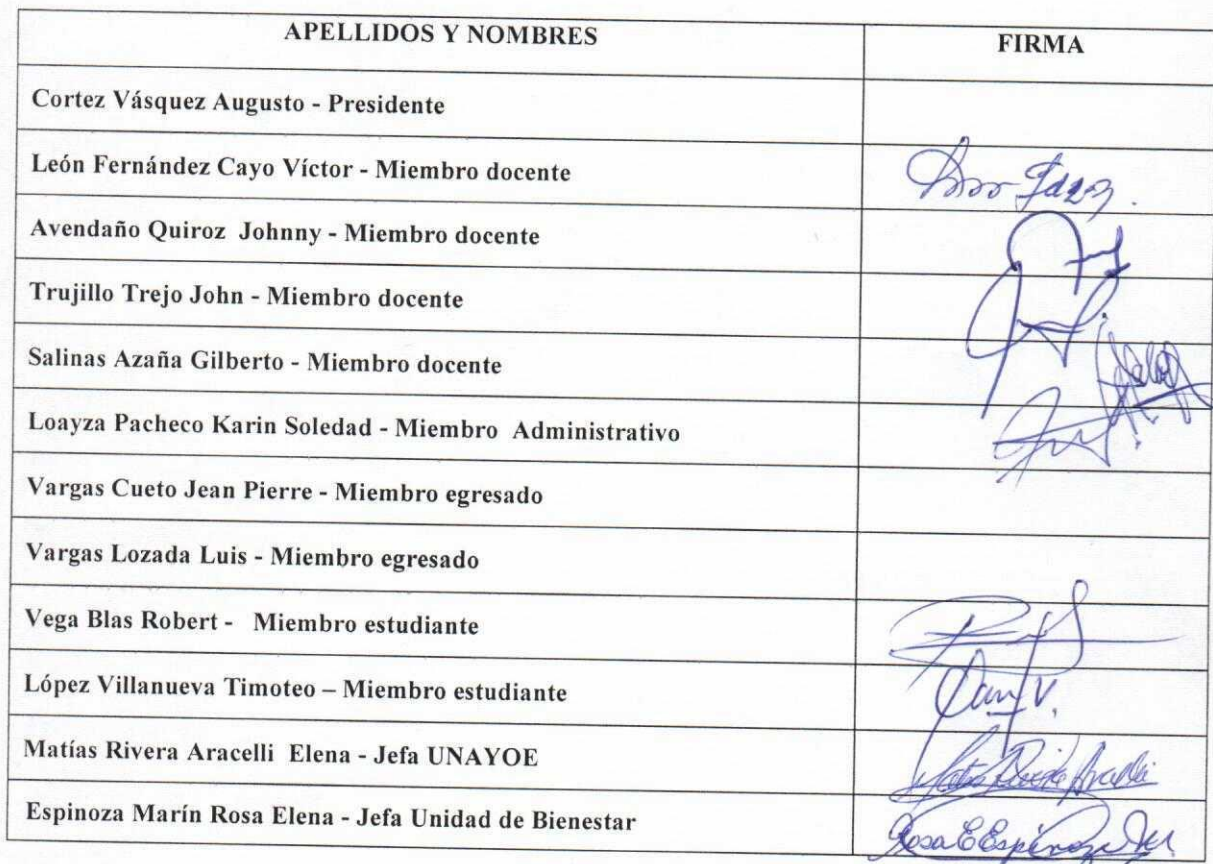 APELLIDOS Y NOMBRES FIRMA
Cortez Vásquez Augusto - Presidente
León Fernández Cayo Víctor - Miembro docente
Avendaño Quiroz Johnny - Miembro docente
Trujillo Trejo John - Miembro docente
Salinas Azaña Gilberto - Miembro docente
Loayza Pacheco Karin Soledad - Miembro Administrativo
Vargas Cueto Jean Pierre - Miembro egresado
Vargas Lozada Luis - Miembro egresado
Vega Blas Robert - Miembro estudiante
López Villanueva Timoteo – Miembro estudiante
Matías Rivera Aracelli Elena - Jefa UNAYOE
Espinoza Marín Rosa Elena - Jefa Unidad de Bienestar Rosa E Espinoza M.